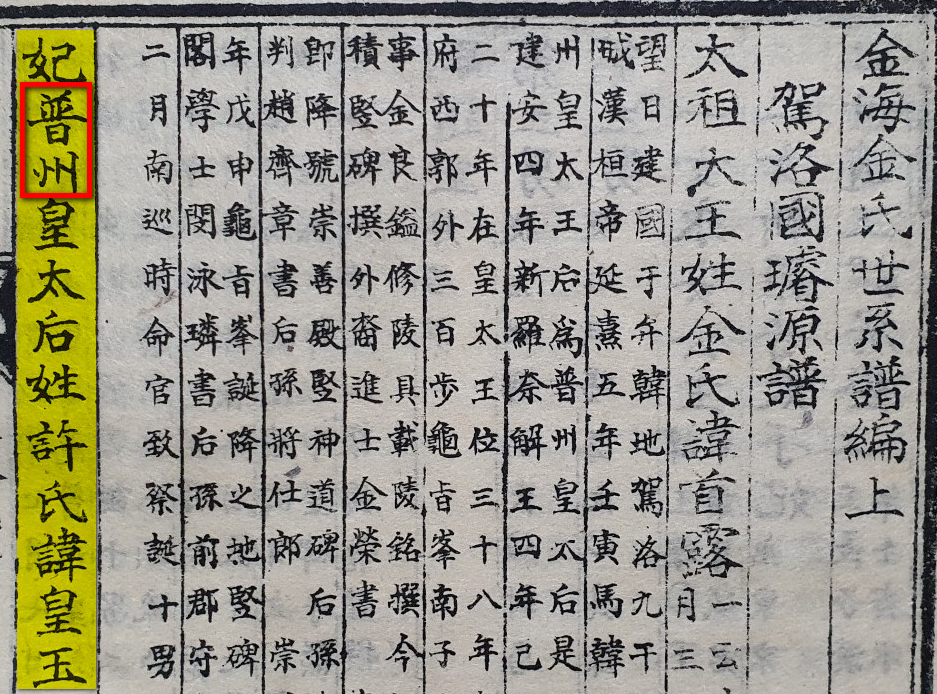 金海金氏世系譜編上
駕洛國璿源譜
太祖大王姓金氏諱首露一云
月三
望日建國于弁韓地駕洛九干
城漢桓帝延熹五年壬寅馬韓
州皇太王后爲普州皇太后是
建安四年新羅奈解王四年己
二十年在皇太王位三十八年
府西郭外三百步龜旨峯南子
事金良鎰修陵具載陵銘撰今
積竪碑撰外裔進士金榮書
卽降號崇善殿竪神道碑后孫
判趙齊章書后孫將仕郎崇
年戊申龜旨峯誕降之地竪碑
閣學士閔泳璘書后孫前郡守
二月南巡時命官致祭誕十男
妃普州皇太后姓許氏諱皇玉